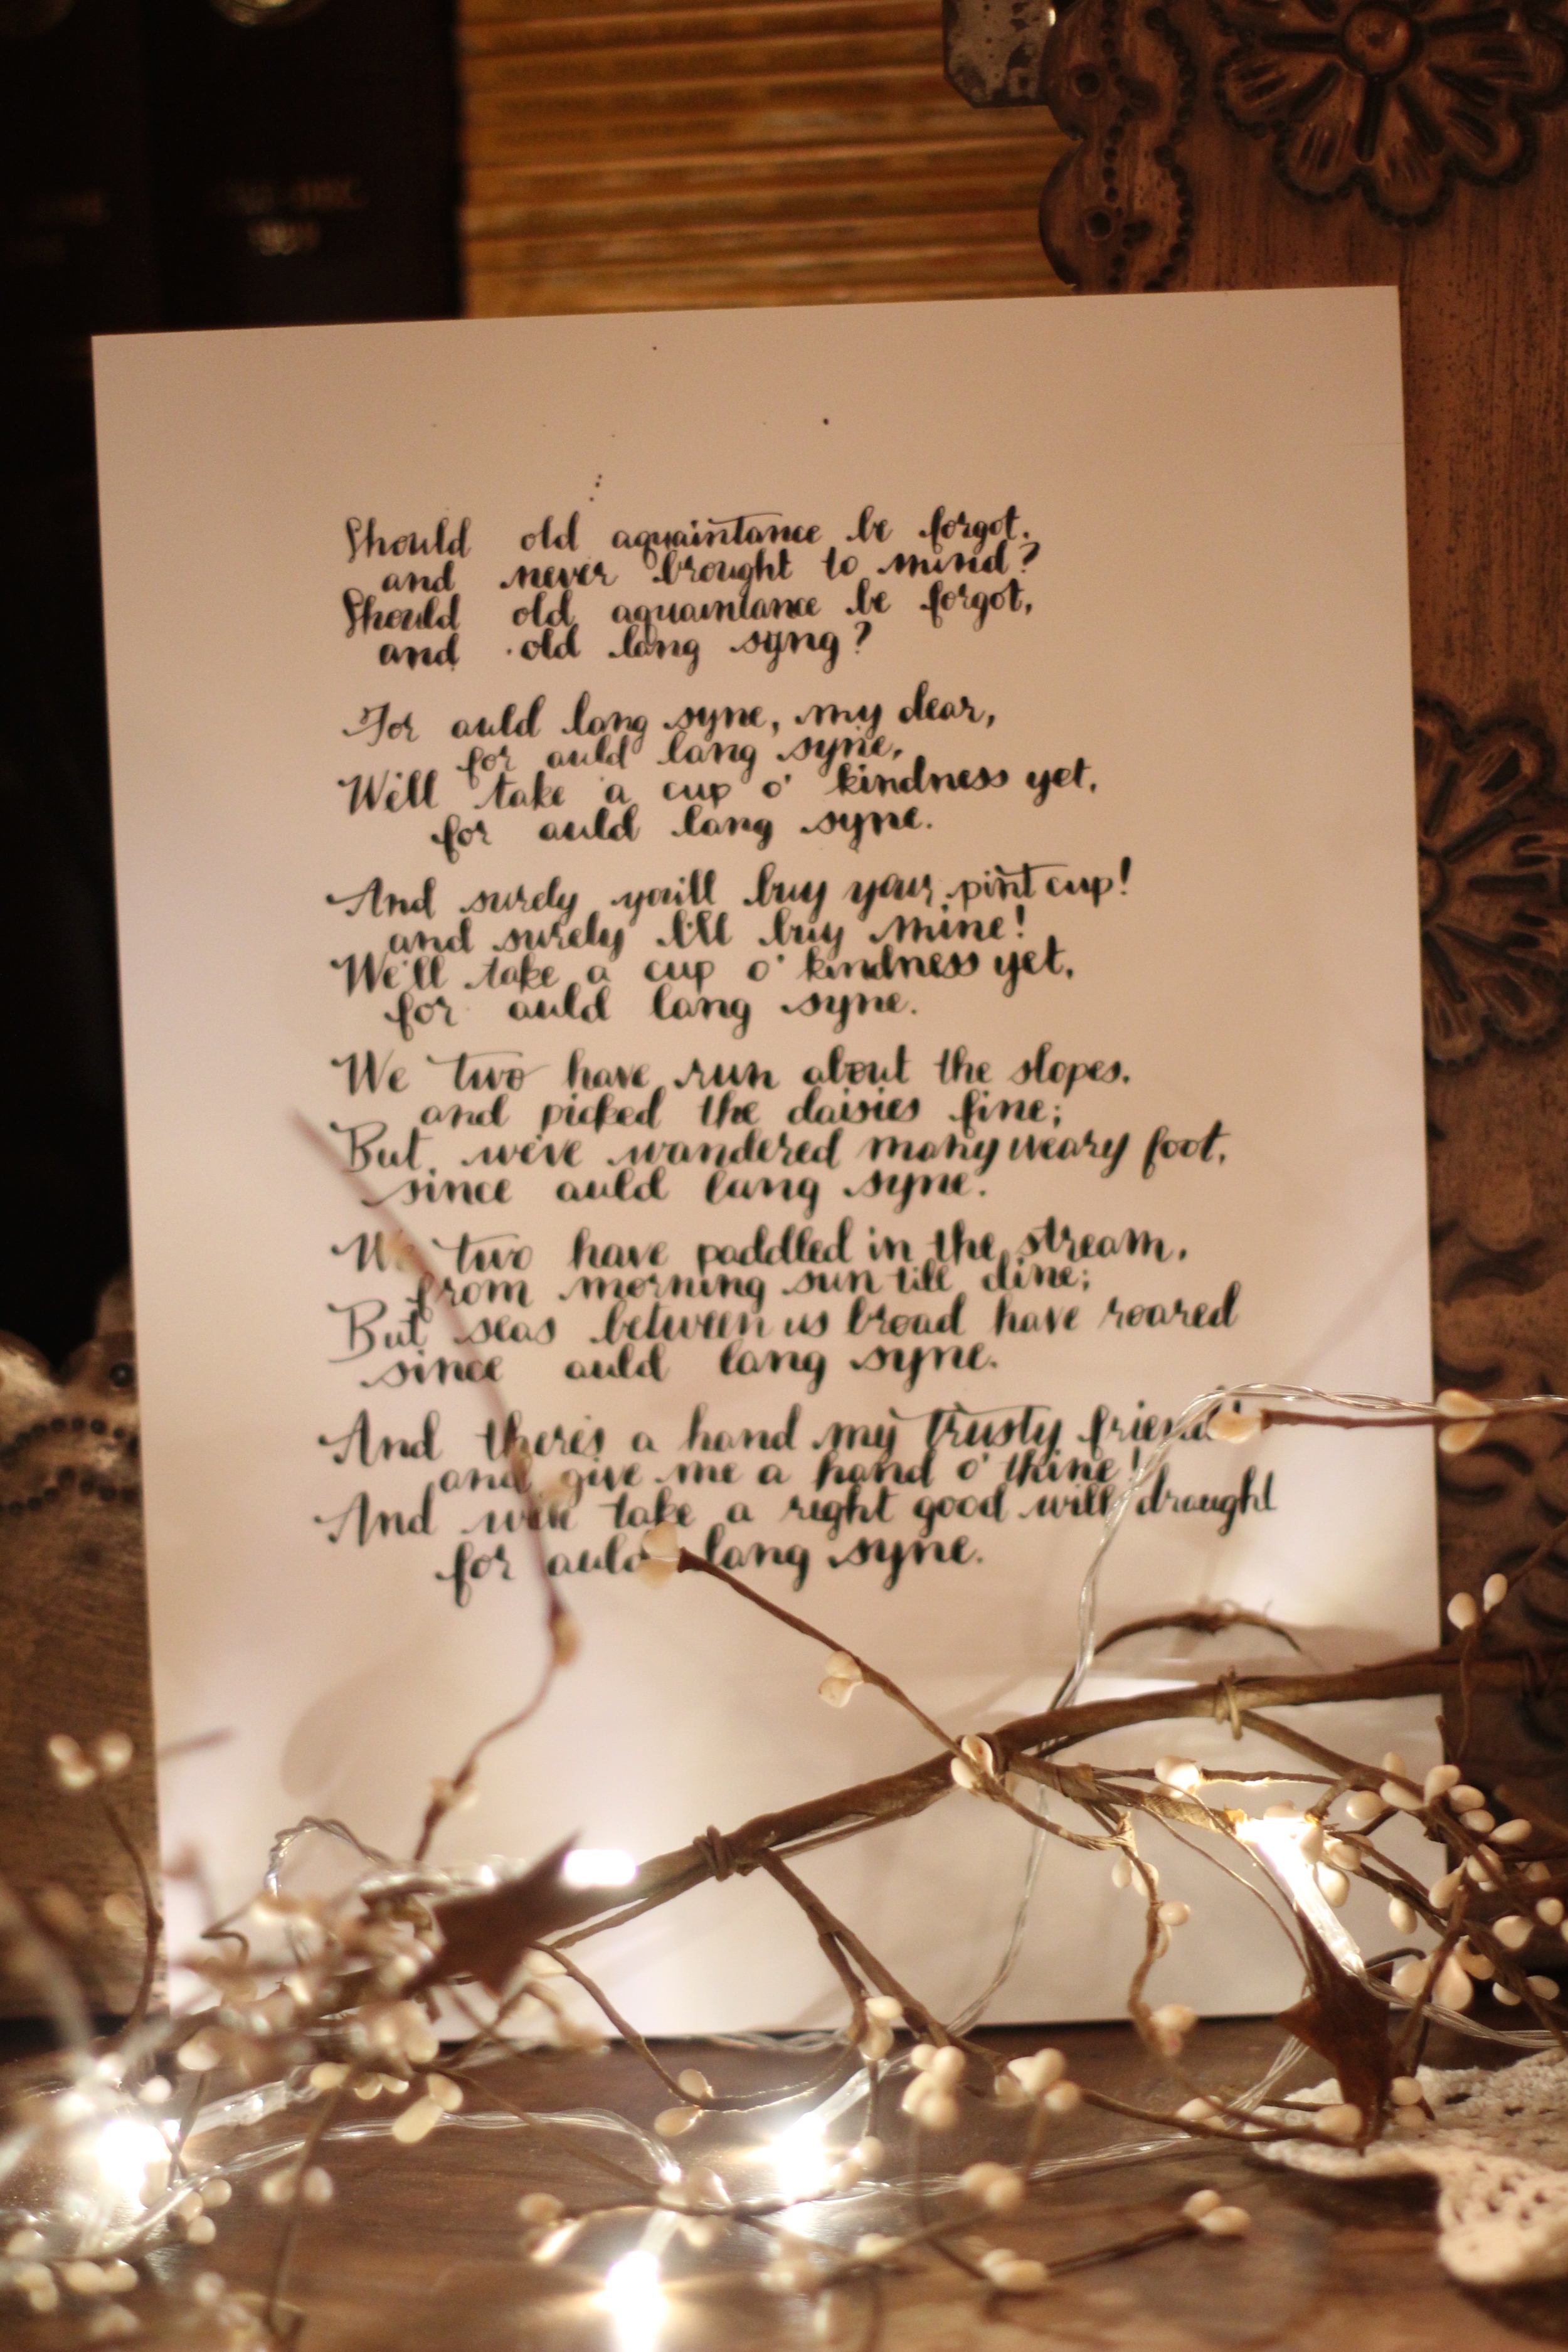 Should old aquaintance be forgot,
and never brought to mind?
Should old aquaintance be forgot,
and old lang syng?
For auld lang syne, my dear,
for auld lang syne,
We'll take a cup o' kindness yet,
for auld lang syne.
And surely you'll buy your pint cup!
and surely I'll buy mine!
We'll take a cup o' kindness yet,
for auld lang syne.
We two have run about the slopes,
and picked the daisies fine;
But we've wandered many weary foot,
since auld lang syne.
We two have paddled in the stream,
from morning sun till dine;
But seas between us broad have roared
since auld lang syne.
And there's a hand my trusty friend!
and give me a hand o' thine!
And we'll take a right good will draught
for auld lang syne.